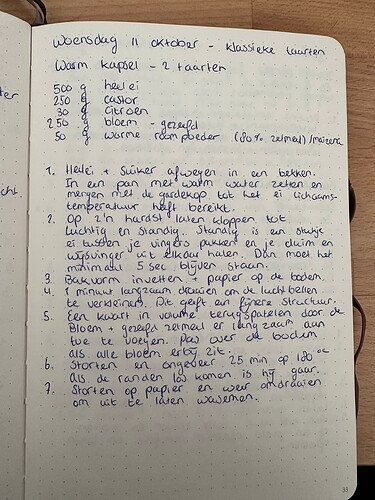 ter
cht.
Woensdag 11 oktober - klassieke taarten
Warm kapsel - 2 taarten
500 g heel ei
250 g castor
30 g citroen
250 g bloem - gezeefd
50 g warme roompoeder (80% zetmeel)/maizena
1. Heelei + suiker afwegen in een bekken.
In een pan met warm water zetten en
mengen met de gardekop tot het ei lichaams-
temperatuur heeft bereikt.
2. Op z'n hardst laten kloppen tot
luchtig en standig. Standig is een stukje
ei tussen je vingers pakken en je duim en
wijsvinger uit elkaar halen. Dan moet het
minimaal 5 sec blijven staan.
3. Bakvorm invetten + papier op de bodem.
4. 1 minuut langzaam draaien om de luchtbellen
te verkleinen. Dit geeft een fijnere structuur.
5. Een kwart in volume terugspatelen door de
Bloem + gezeefd zetmeel er langzaam aan
toe te voegen. Pas over de bodem
als alle bloem erbij zit.
6. Storten en ongeveer 25 min op 180 °C
als de randen los komen is hij gaar.
7. Storten op papier en weer omdraaien
om uit te laten wasemen.
33